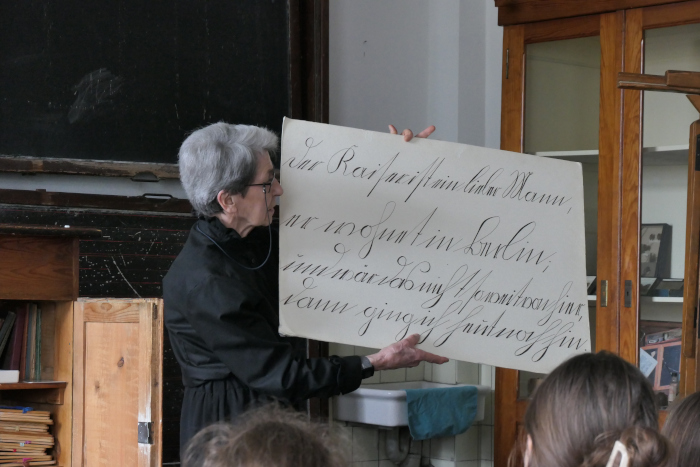 Der Kaiser ist ein lieber Mann,
er wohnet in Berlin;
und wär das nicht so weit von hier,
dann ging ich heut noch hin